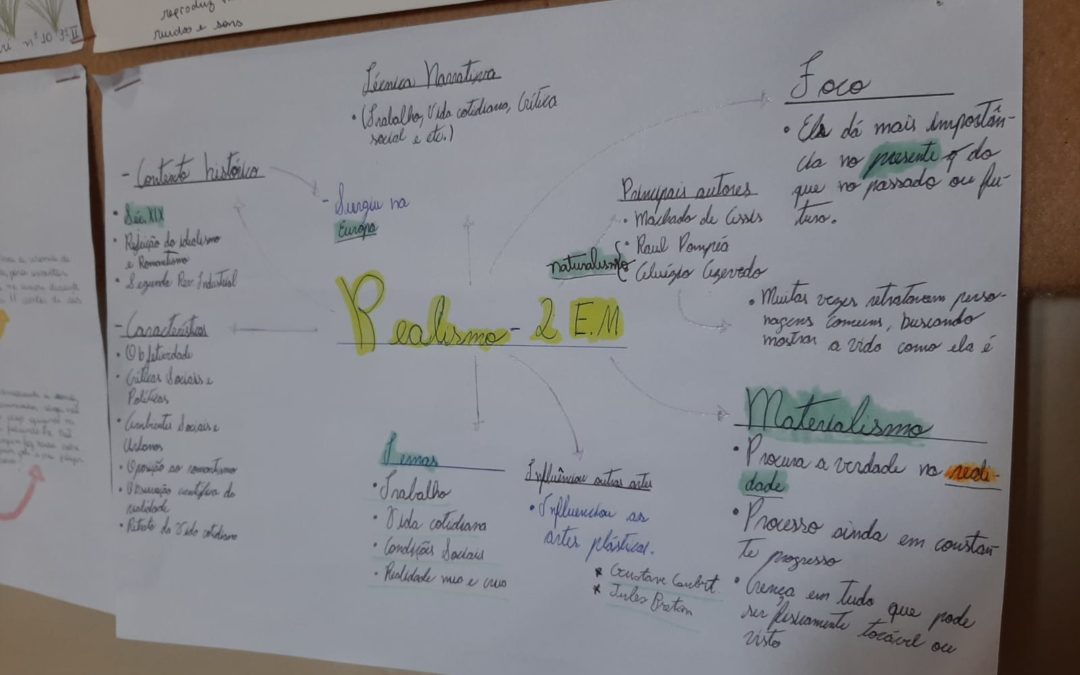 reproduz
ruidos e sons
nº 10 3º II
Técnica Narrativa
• (Trabalho, Vida cotidiana, Crítica
social e etc.)
- Contexto histórico
• Séc. XIX
• Rejeição do idealismo
e Romantismo
• Segunda Rev. Industrial
- Surgiu na
Europa
Foco
• Ela dá mais importân-
cia no presente q do
que no passado ou fu-
turo.
Principais autores
• Machado de Assis
naturalismo { • Raul Pompéia
• Aluízio Azevedo
• Muitas vezes retratavam perso-
nagens comuns, buscando
mostrar a vida como ela é
Realismo - 2 E.M
- Característias
• Objetividade
• Críticas Sociais e
Políticas
• Ambientes Sociais e
Urbanos
• Oposição ao romantismo
• Observação científica da
realidade
• Retrato da Vida cotidiana
Temas
• Trabalho
• Vida cotidiana
• Condições Sociais
• Realidade nua e crua
Influênciou outras artes
• Influenciou as
artes plásticas.
* Gustave Coubert
* Jules Breton
Materialismo
• Procura a verdade na reali-
dade
• Processo ainda em constan-
te progresso
• Crença em tudo que pode
ser fisicamente tocável ou
visto